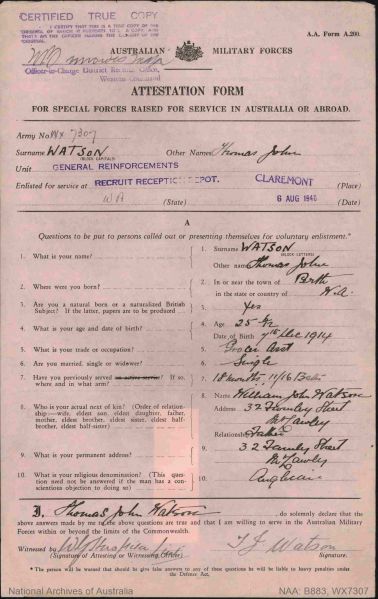 CERTIFIED TRUE COPY
A.A. Form A.200.
AUSTRALIAN MILITARY FORCES
Officer-in-Charge District Records Office,
Western Command
ATTESTATION FORM
FOR SPECIAL FORCES RAISED FOR SERVICE IN AUSTRALIA OR ABROAD.
Army No. WX 7307
Surname WATSON Other Names Thomas John
(BLOCK CAPITALS)
Unit GENERAL REINFORCEMENTS
Enlisted for service at RECRUIT RECEPTION DEPOT. CLAREMONT (Place)
WA (State) 6 AUG 1940 (Date)
A
Questions to be put to persons called out or presenting themselves for voluntary enlistment.*
1. What is your name? 1. Surname WATSON
(BLOCK LETTERS)
Other name Thomas John
2. Where were you born? 2. In or near the town of Perth
in the state or country of W.A.
3. Are you a natural born or a naturalized British Subject? If the latter, papers are to be produced 3. Yes
4. What is your age and date of birth? 4. Age 25
Date of Birth 7th Dec 1914
5. What is your trade or occupation? 5. Grocer Asst
6. Are you married, single or widower? 6. Single
7. Have you previously served on active service? If so, where and in what arm? 7. 18 months 11/16 Batn
8. Who is your actual next of kin? (Order of relationship—wife, eldest son, eldest daughter, father, mother, eldest brother, eldest sister, eldest half-brother, eldest half-sister) 8. Name William John Watson
Address 32 Street
Mt Lawley
Relationship Father
9. What is your permanent address? 9. 32 Street
Mt Lawley
10. What is your religious denomination? (This question need not be answered if the man has a conscientious objection to doing so) 10. Anglican
I, Thomas John Watson do solemnly declare that the
above answers made by me to the above questions are true and that I am willing to serve in the Australian Military
Forces within or beyond the limits of the Commonwealth.
Witnessed by T J Watson
(Signature of Attesting or Witnessing Officer) Signature.
* The person will be warned that should he give false answers to any of these questions he will be liable to heavy penalties under
the Defence Act.
National Archives of Australia NAA: B883, WX7307